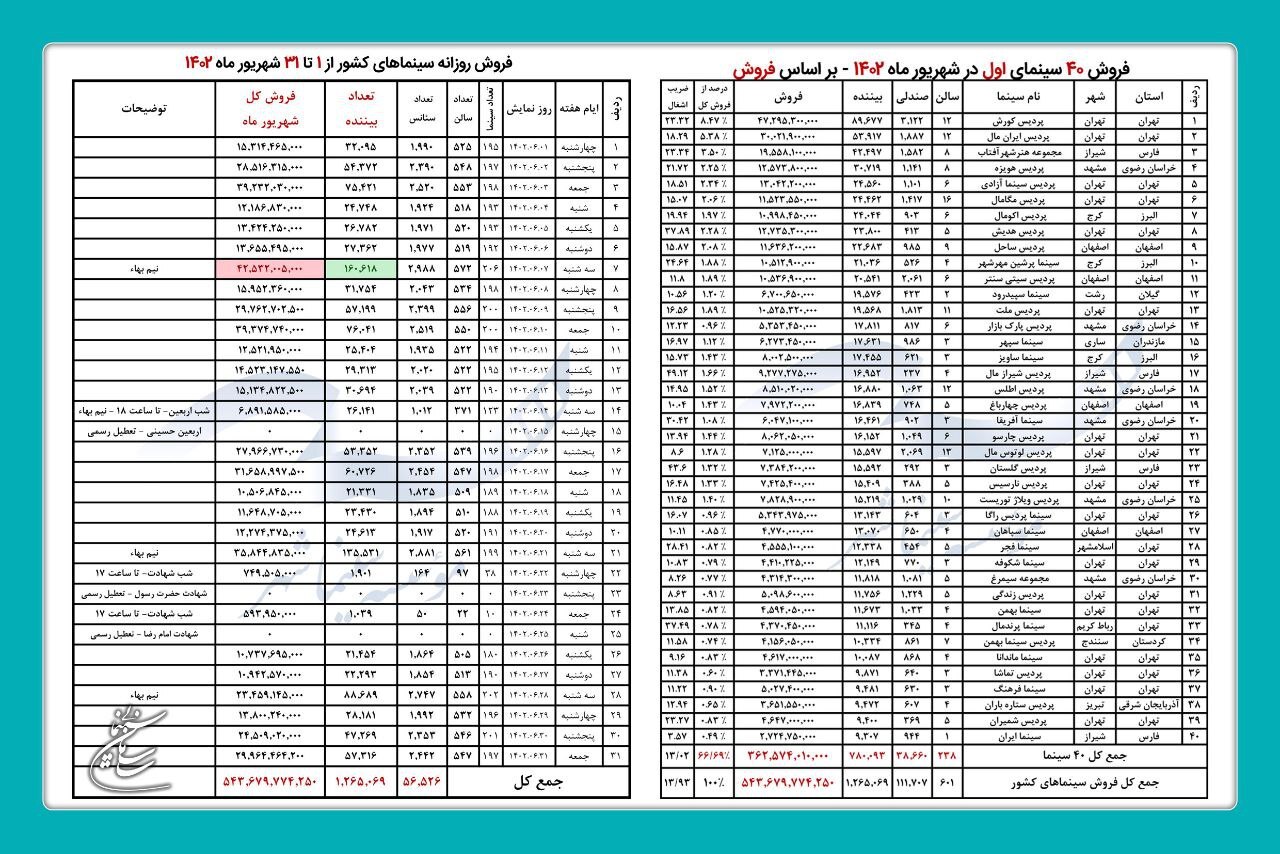 فروش ۴۰ سینمای اول در شهریور ماه ۱۴۰۲ - بر اساس فروش
ردیف استان شهر نام سینما سالن صندلی بیننده فروش درصد از فروش کل ضریب اشغال
۱ تهران تهران پردیس کورش ۱۲ ۳,۱۲۲ ۸۹,۶۷۷ ۴۷,۲۹۵,۳۰۰,۰۰۰ ۸.۴۷٪ ۲۳.۳۲
۲ تهران تهران پردیس ایران مال ۱۲ ۱,۸۸۷ ۵۳,۹۱۷ ۳۰,۰۲۱,۹۰۰,۰۰۰ ۵.۳۸٪ ۱۸.۲۹
۳ فارس شیراز مجموعه هنرشهرآفتاب ۸ ۱,۵۸۲ ۴۲,۴۹۷ ۱۹,۵۵۸,۱۰۰,۰۰۰ ۳.۵۰٪ ۲۳.۳۴
۴ خراسان رضوی مشهد پردیس هویزه ۸ ۱,۱۴۱ ۳۰,۷۱۹ ۱۲,۵۷۳,۸۰۰,۰۰۰ ۲.۲۵٪ ۲۱.۷۲
۵ تهران تهران پردیس سینما آزادی ۶ ۱,۱۰۱ ۲۴,۵۶۰ ۱۳,۰۴۲,۲۰۰,۰۰۰ ۲.۳۴٪ ۱۸.۵۱
۶ تهران تهران پردیس مگامال ۱۶ ۱,۴۱۷ ۲۴,۴۶۲ ۱۱,۵۲۳,۵۵۰,۰۰۰ ۲.۰۶٪ ۱۵.۰۷
۷ البرز کرج پردیس اکومال ۶ ۹۰۳ ۲۴,۰۴۴ ۱۰,۹۹۸,۴۵۰,۰۰۰ ۱.۹۷٪ ۱۹.۹۴
۸ تهران تهران پردیس هدیش ۵ ۴۱۳ ۲۳,۸۰۰ ۱۲,۷۳۵,۳۰۰,۰۰۰ ۲.۲۸٪ ۳۷.۸۹
۹ اصفهان اصفهان پردیس ساحل ۹ ۹۸۵ ۲۲,۶۸۳ ۱۱,۶۳۶,۲۰۰,۰۰۰ ۲.۰۸٪ ۱۵.۸۷
۱۰ البرز کرج سینما پرشین مهرشهر ۴ ۵۲۶ ۲۱,۰۳۶ ۱۰,۵۱۲,۹۰۰,۰۰۰ ۱.۸۸٪ ۲۴.۶۴
۱۱ اصفهان اصفهان پردیس سیتی سنتر ۶ ۲,۰۶۱ ۲۰,۵۴۱ ۱۰,۵۳۶,۹۰۰,۰۰۰ ۱.۸۹٪ ۱۱.۸
۱۲ گیلان رشت سینما سپیدرود ۲ ۴۲۳ ۱۹,۵۷۶ ۶,۷۰۰,۶۵۰,۰۰۰ ۱.۲۰٪ ۱۰.۵۶
۱۳ تهران تهران پردیس ملت ۱۱ ۱,۸۱۳ ۱۹,۵۶۸ ۱۰,۵۲۵,۳۲۰,۰۰۰ ۱.۸۹٪ ۱۶.۵۶
۱۴ خراسان رضوی مشهد پردیس پارک بازار ۶ ۸۱۷ ۱۷,۸۱۱ ۵,۳۵۳,۴۵۰,۰۰۰ ۰.۹۶٪ ۱۲.۲۳
۱۵ مازندران ساری سینما سپهر ۳ ۹۸۶ ۱۷,۶۳۱ ۶,۲۷۳,۴۵۰,۰۰۰ ۱.۱۲٪ ۱۶.۹۷
۱۶ البرز کرج سینما ساویز ۳ ۶۲۱ ۱۷,۴۵۵ ۸,۰۰۲,۵۰۰,۰۰۰ ۱.۴۳٪ ۱۵.۷۳
۱۷ فارس شیراز پردیس شیراز مال ۴ ۲۳۷ ۱۶,۹۵۲ ۹,۲۷۷,۲۷۵,۰۰۰ ۱.۶۶٪ ۴۹.۱۲
۱۸ خراسان رضوی مشهد پردیس اطلس ۱۲ ۱,۰۶۳ ۱۶,۸۸۰ ۸,۵۱۰,۰۲۰,۰۰۰ ۱.۵۲٪ ۱۴.۹۵
۱۹ اصفهان اصفهان پردیس چهارباغ ۵ ۷۴۸ ۱۶,۸۳۹ ۷,۹۷۲,۲۰۰,۰۰۰ ۱.۴۳٪ ۱۰.۰۴
۲۰ خراسان رضوی مشهد سینما آفریقا ۳ ۹۰۲ ۱۶,۴۶۱ ۶,۰۴۷,۱۰۰,۰۰۰ ۱.۰۸٪ ۳۰.۴۲
۲۱ تهران تهران پردیس چارسو ۶ ۱,۰۴۹ ۱۶,۱۵۲ ۸,۰۶۲,۰۵۰,۰۰۰ ۱.۴۴٪ ۱۳.۹۴
۲۲ تهران تهران پردیس لوتوس مال ۱۳ ۲,۰۶۹ ۱۵,۵۹۷ ۷,۱۲۵,۰۰۰,۰۰۰ ۱.۲۸٪ ۸.۶
۲۳ فارس شیراز پردیس گلستان ۳ ۲۹۲ ۱۵,۵۹۲ ۷,۳۸۴,۲۰۰,۰۰۰ ۱.۳۲٪ ۴۳.۶
۲۴ تهران تهران پردیس نارسیس ۵ ۳۸۸ ۱۵,۴۰۹ ۷,۴۲۵,۴۰۰,۰۰۰ ۱.۳۳٪ ۱۶.۴۸
۲۵ خراسان رضوی مشهد پردیس ویلاژ توریست ۱۰ ۱,۰۲۹ ۱۵,۲۱۹ ۷,۸۲۸,۹۰۰,۰۰۰ ۱.۴۰٪ ۱۱.۴۵
۲۶ تهران تهران سینما پردیس راگا ۳ ۶۰۴ ۱۳,۱۴۳ ۵,۳۴۳,۹۷۵,۰۰۰ ۰.۹۶٪ ۱۶.۰۷
۲۷ اصفهان اصفهان سینما سپاهان ۴ ۶۵۰ ۱۳,۰۷۰ ۴,۷۷۰,۰۰۰,۰۰۰ ۰.۸۵٪ ۱۰.۱۱
۲۸ تهران اسلامشهر سینما فجر ۵ ۴۵۴ ۱۲,۳۳۸ ۴,۵۵۵,۱۰۰,۰۰۰ ۰.۸۲٪ ۲۸.۴۱
۲۹ تهران تهران سینما شکوفه ۳ ۷۷۰ ۱۲,۱۴۹ ۴,۴۱۰,۲۲۵,۰۰۰ ۰.۷۹٪ ۱۰.۸۳
۳۰ خراسان رضوی مشهد مجموعه سیمرغ ۵ ۱,۰۸۱ ۱۱,۸۱۸ ۴,۳۱۴,۳۰۰,۰۰۰ ۰.۷۷٪ ۸.۲۶
۳۱ تهران تهران پردیس زندگی ۵ ۱,۲۲۹ ۱۱,۷۵۶ ۵,۰۹۸,۶۰۰,۰۰۰ ۰.۹۱٪ ۸.۶۳
۳۲ تهران تهران سینما بهمن ۴ ۱,۰۳۳ ۱۱,۶۷۳ ۴,۵۹۴,۰۵۰,۰۰۰ ۰.۸۲٪ ۱۳.۸۵
۳۳ تهران رباط کریم سینما پرندمال ۴ ۳۴۵ ۱۱,۱۱۶ ۴,۳۷۰,۴۵۰,۰۰۰ ۰.۷۸٪ ۳۷.۴۹
۳۴ کردستان سنندج پردیس سینما بهمن ۷ ۸۶۱ ۱۰,۳۳۴ ۴,۱۵۶,۰۵۰,۰۰۰ ۰.۷۴٪ ۱۱.۵۸
۳۵ تهران تهران سینما ماندانا ۴ ۸۶۸ ۱۰,۰۸۷ ۴,۶۱۷,۰۰۰,۰۰۰ ۰.۸۳٪ ۹.۱۶
۳۶ تهران تهران پردیس تماشا ۳ ۶۴۰ ۹,۸۷۱ ۳,۳۷۱,۴۴۵,۰۰۰ ۰.۶۰٪ ۱۱.۳۸
۳۷ تهران تهران سینما فرهنگ ۳ ۶۳۰ ۹,۴۸۱ ۵,۰۲۷,۴۰۰,۰۰۰ ۰.۹۰٪ ۱۱.۲۲
۳۸ آذربایجان شرقی تبریز پردیس ستاره باران ۴ ۶۰۷ ۹,۴۷۲ ۳,۶۵۱,۵۵۰,۰۰۰ ۰.۶۵٪ ۱۲.۹۴
۳۹ تهران تهران پردیس شمیران ۵ ۳۶۹ ۹,۴۰۰ ۴,۶۴۷,۰۰۰,۰۰۰ ۰.۸۳٪ ۲۳.۲۷
۴۰ فارس شیراز سینما ایران ۱ ۹۴۴ ۹,۳۰۷ ۲,۷۲۴,۷۵۰,۰۰۰ ۰.۴۹٪ ۳.۵۷
جمع کل ۴۰ سینما ۲۳۸ ۳۸,۶۶۰ ۷۸۰,۰۹۳ ۳۶۲,۵۷۴,۰۱۰,۰۰۰ ۶۶/۶۹٪ ۱۳/۰۲
جمع کل فروش سینماهای کشور ۶۰۱ ۱۱۱,۷۰۷ ۱,۲۶۵,۰۶۹ ۵۴۳,۶۷۹,۷۷۴,۲۵۰ ۱۰۰٪ ۱۳/۹۳
فروش روزانه سینماهای کشور از ۱ تا ۳۱ شهریور ماه ۱۴۰۲
ردیف ایام هفته روز نمایش تعداد سینما تعداد سالن تعداد سئانس تعداد بیننده فروش کل شهریور ماه توضیحات
۱ چهارشنبه ۱۴۰۲.۰۶.۰۱ ۱۹۵ ۵۲۵ ۱,۹۹۰ ۳۲,۰۹۵ ۱۵,۳۱۴,۴۶۵,۰۰۰
۲ پنجشنبه ۱۴۰۲.۰۶.۰۲ ۱۹۷ ۵۴۸ ۲,۳۹۰ ۵۴,۳۷۲ ۲۸,۵۱۶,۳۱۵,۰۰۰
۳ جمعه ۱۴۰۲.۰۶.۰۳ ۱۹۸ ۵۵۳ ۲,۵۲۰ ۷۵,۴۲۱ ۳۹,۲۳۲,۰۳۰,۰۰۰
۴ شنبه ۱۴۰۲.۰۶.۰۴ ۱۹۳ ۵۱۸ ۱,۹۲۴ ۲۴,۷۴۸ ۱۲,۱۸۶,۸۳۰,۰۰۰
۵ یکشنبه ۱۴۰۲.۰۶.۰۵ ۱۹۳ ۵۲۰ ۱,۹۷۱ ۲۶,۷۸۲ ۱۳,۴۲۴,۲۵۰,۰۰۰
۶ دوشنبه ۱۴۰۲.۰۶.۰۶ ۱۹۲ ۵۱۹ ۱,۹۷۷ ۲۷,۳۶۲ ۱۳,۶۵۵,۴۹۵,۰۰۰
۷ سه شنبه ۱۴۰۲.۰۶.۰۷ ۲۰۶ ۵۷۲ ۲,۹۸۸ ۱۶۰,۶۱۸ ۴۲,۵۳۲,۰۰۵,۰۰۰ نیم بهاء
۸ چهارشنبه ۱۴۰۲.۰۶.۰۸ ۱۹۸ ۵۳۴ ۲,۰۴۳ ۳۱,۷۵۴ ۱۵,۹۵۲,۳۶۰,۰۰۰
۹ پنجشنبه ۱۴۰۲.۰۶.۰۹ ۲۰۰ ۵۵۶ ۲,۳۹۹ ۵۷,۱۹۹ ۲۹,۷۶۲,۷۰۲,۵۰۰
۱۰ جمعه ۱۴۰۲.۰۶.۱۰ ۲۰۰ ۵۵۰ ۲,۵۱۹ ۷۶,۰۴۱ ۳۹,۳۷۴,۷۴۰,۰۰۰
۱۱ شنبه ۱۴۰۲.۰۶.۱۱ ۱۹۴ ۵۲۲ ۱,۹۳۵ ۲۵,۴۰۴ ۱۲,۵۲۱,۹۵۰,۰۰۰
۱۲ یکشنبه ۱۴۰۲.۰۶.۱۲ ۱۹۵ ۵۲۲ ۲,۰۲۰ ۲۹,۳۱۳ ۱۴,۵۲۳,۱۴۷,۵۵۰
۱۳ دوشنبه ۱۴۰۲.۰۶.۱۳ ۱۹۰ ۵۲۲ ۲,۰۳۹ ۳۰,۶۹۴ ۱۵,۱۳۴,۸۲۲,۵۰۰
۱۴ سه شنبه ۱۴۰۲.۰۶.۱۴ ۱۲۳ ۳۷۱ ۱,۰۱۲ ۲۶,۱۴۱ ۶,۸۹۱,۵۸۵,۰۰۰ شب اربعین- تا ساعت ۱۸ - نیم بهاء
۱۵ چهارشنبه ۱۴۰۲.۰۶.۱۵ ۰ ۰ ۰ ۰ ۰ اربعین حسینی - تعطیل رسمی
۱۶ پنجشنبه ۱۴۰۲.۰۶.۱۶ ۱۹۶ ۵۳۹ ۲,۳۵۲ ۵۳,۳۵۲ ۲۷,۹۶۶,۷۳۰,۰۰۰
۱۷ جمعه ۱۴۰۲.۰۶.۱۷ ۱۹۸ ۵۴۷ ۲,۴۵۴ ۶۰,۷۲۶ ۳۱,۶۵۸,۹۹۷,۵۰۰
۱۸ شنبه ۱۴۰۲.۰۶.۱۸ ۱۸۹ ۵۰۹ ۱,۸۳۵ ۲۱,۳۳۱ ۱۰,۵۰۶,۸۴۵,۰۰۰
۱۹ یکشنبه ۱۴۰۲.۰۶.۱۹ ۱۸۸ ۵۱۰ ۱,۸۹۴ ۲۳,۴۳۰ ۱۱,۶۴۸,۷۰۵,۰۰۰
۲۰ دوشنبه ۱۴۰۲.۰۶.۲۰ ۱۹۱ ۵۲۰ ۱,۹۱۷ ۲۴,۶۱۳ ۱۲,۲۷۴,۳۷۵,۰۰۰
۲۱ سه شنبه ۱۴۰۲.۰۶.۲۱ ۱۹۹ ۵۶۱ ۲,۸۸۱ ۱۳۵,۵۳۱ ۳۵,۸۴۴,۸۳۵,۰۰۰ نیم بهاء
۲۲ چهارشنبه ۱۴۰۲.۰۶.۲۲ ۳۸ ۹۷ ۱۶۴ ۱,۹۰۱ ۷۴۹,۵۰۵,۰۰۰ شب شهادت- تا ساعت ۱۷
۲۳ پنجشنبه ۱۴۰۲.۰۶.۲۳ ۰ ۰ ۰ ۰ ۰ شهادت حضرت رسول - تعطیل رسمی
۲۴ جمعه ۱۴۰۲.۰۶.۲۴ ۱۰ ۲۲ ۵۰ ۱,۰۳۹ ۵۹۳,۹۵۰,۰۰۰ شب شهادت- تا ساعت ۱۷
۲۵ شنبه ۱۴۰۲.۰۶.۲۵ ۰ ۰ ۰ ۰ ۰ شهادت امام رضا - تعطیل رسمی
۲۶ یکشنبه ۱۴۰۲.۰۶.۲۶ ۱۸۰ ۵۰۵ ۱,۸۶۴ ۲۱,۴۵۴ ۱۰,۷۳۷,۶۹۵,۰۰۰
۲۷ دوشنبه ۱۴۰۲.۰۶.۲۷ ۱۹۰ ۵۱۳ ۱,۸۵۴ ۲۲,۲۹۳ ۱۰,۹۴۲,۵۷۰,۰۰۰
۲۸ سه شنبه ۱۴۰۲.۰۶.۲۸ ۲۰۲ ۵۵۸ ۲,۷۴۷ ۸۸,۶۸۹ ۲۳,۴۵۹,۱۴۵,۰۰۰ نیم بهاء
۲۹ چهارشنبه ۱۴۰۲.۰۶.۲۹ ۱۹۶ ۵۳۲ ۱,۹۹۲ ۲۸,۱۸۱ ۱۳,۸۰۰,۲۴۰,۰۰۰
۳۰ پنجشنبه ۱۴۰۲.۰۶.۳۰ ۲۰۱ ۵۴۶ ۲,۳۵۳ ۴۷,۲۶۹ ۲۴,۵۰۹,۰۲۰,۰۰۰
۳۱ جمعه ۱۴۰۲.۰۶.۳۱ ۱۹۷ ۵۴۷ ۲,۴۴۲ ۵۷,۳۱۶ ۲۹,۹۶۴,۴۶۴,۲۰۰
جمع کل ۵۶,۵۲۶ ۱,۲۶۵,۰۶۹ ۵۴۳,۶۷۹,۷۷۴,۲۵۰